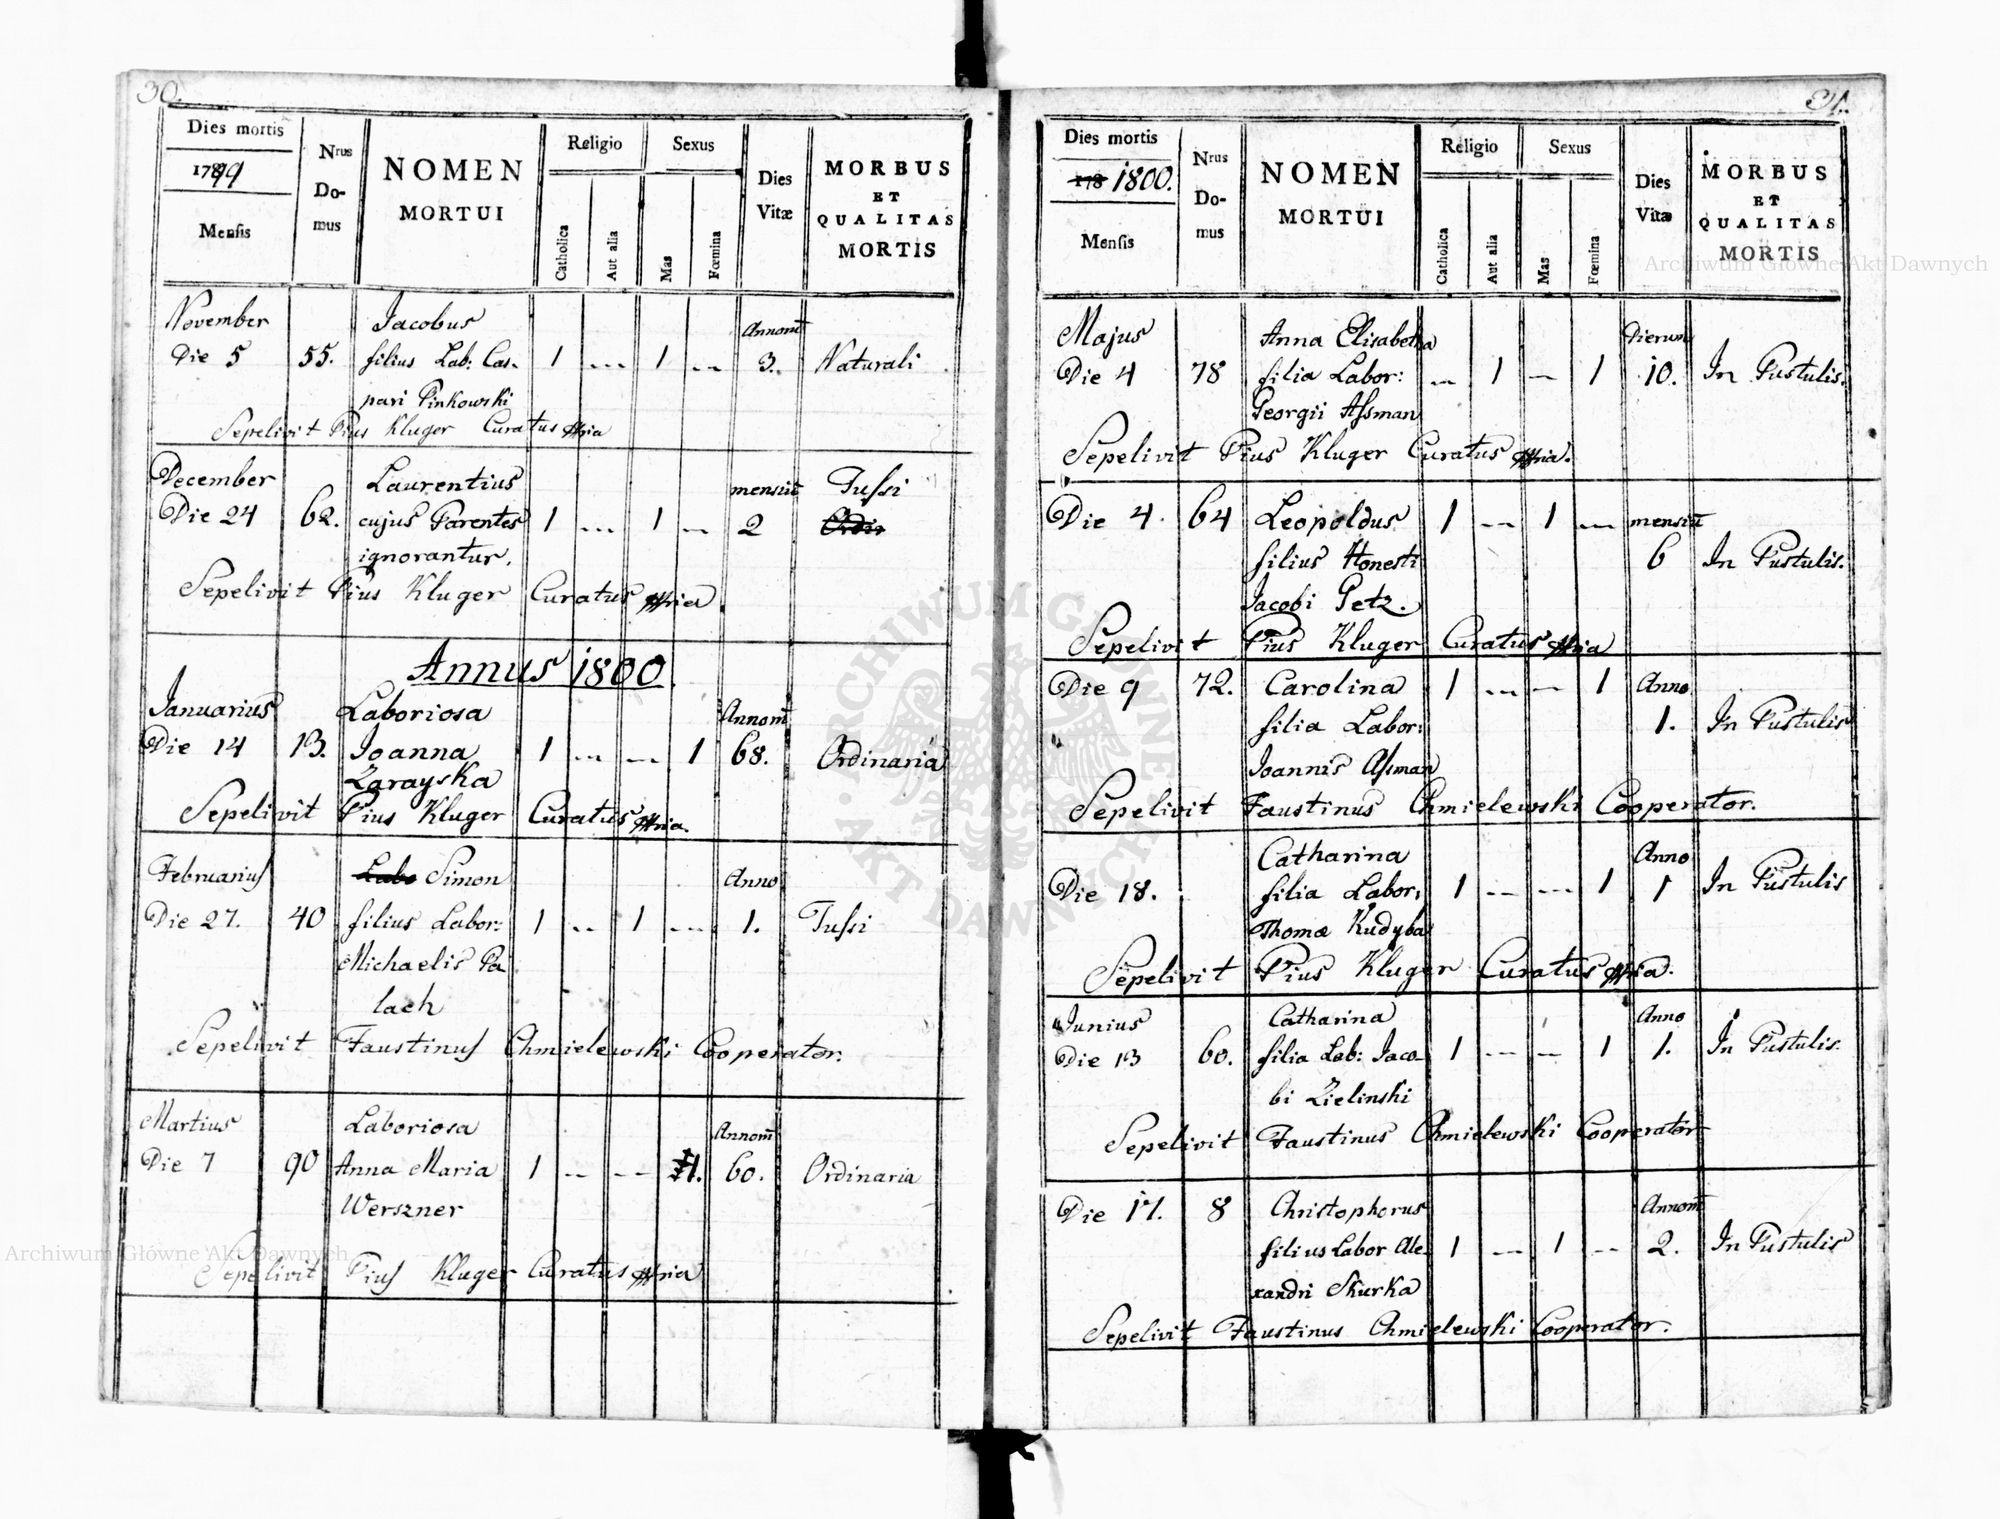 30.
Dies mortis
1799
Mensis
Nrus
Do-
mus
NOMEN
MORTUI
Religio
Catholica
Aut alia
Sexus
Mas
Fœmina
Dies
Vitæ
MORBUS
ET
QUALITAS
MORTIS
November Jacobus Annorũ
Die 5 55. filius Lab: Cas- 1 --- 1 -- 3. Naturali
pari Pinkowski
Sepelivit Pius Kluger Curatus
December Laurentius mensiũ Tussi
Die 24 62. cujus Parentes 1 --- 1 -- 2
ignorantur.
Sepelivit Pius Kluger Curatus
Annus 1800.
Januarius Laboriosa Annorũ
Die 14 13. Joanna 1 --- --- 1 68. Ordinaria
Zarayska
Sepelivit Pius Kluger Curatus
Februarius Labo Simon Anno
Die 27. 40 filius Labor: 1 -- 1 --- 1. Tussi
Michaelis Pa
lach
Sepelivit Faustinus Chmielewski Cooperator.
Martius Laboriosa Annorũ
Die 7 90 Anna Maria 1 -- -- 1. 60. Ordinaria
Werszner
Sepelivit Pius Kluger Curatus
31.
Dies mortis
178 1800.
Mensis
Nrus
Do-
mus
NOMEN
MORTUI
Religio
Catholica
Aut alia
Sexus
Mas
Fœmina
Dies
Vitæ
MORBUS
ET
QUALITAS
MORTIS
Majus Anna Elisabetha Dierum
Die 4 78 filia Labor: -- 1 -- 1 10. In Pustulis.
Georgii Assman
Sepelivit Pius Kluger Curatus
Die 4. 64 Leopoldus 1 -- 1 -- mensiũ
filius Honesti 6 In Pustulis.
Jacobi Getz.
Sepelivit Pius Kluger Curatus
Die 9 72. Carolina 1 --- -- 1 Anno
filia Labor: 1. In Pustulis
Joannis Assman
Sepelivit Faustinus Chmielewski Cooperator.
Catharina Anno
Die 18. filia Labor: 1 --- --- 1 1 In Pustulis
Thomæ Kudyba
Sepelivit Pius Kluger Curatus
Junius Catharina Anno
Die 13 60. filia Lab: Jaco- 1 --- -- 1 1. In Pustulis.
bi Zielinski
Sepelivit Faustinus Chmielewski Cooperator
Die 17. 8 Christophorus Annorũ
filius Labor Ale- 1 --- 1 -- 2. In Pustulis
xandri Skurka
Sepelivit Faustinus Chmielewski Cooperator.
Archiwum Główne Akt Dawnych
Archiwum Główne Akt Dawnych
ARCHIWUM GŁÓWNE
AKT DAWNYCH